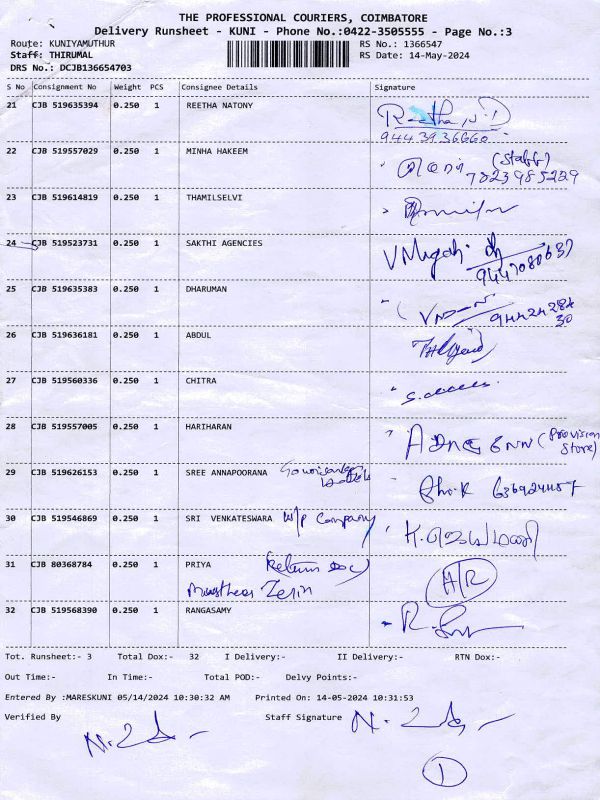 THE PROFESSIONAL COURIERS, COIMBATORE
Delivery Runsheet - KUNI - Phone No.:0422-3505555 - Page No.:3
Route: KUNIYAMUTHUR RS No.: 1366547
Staff: THIRUMAL RS Date: 14-May-2024
DRS No.: DCJB136654703
S No Consignment No Weight PCS Consignee Details Signature
21 CJB 519635394 0.250 1 REETHA NATONY
22 CJB 519557029 0.250 1 MINHA HAKEEM (Staff)
7823985229
23 CJB 519614819 0.250 1 THAMILSELVI
24 CJB 519523731 0.250 1 SAKTHI AGENCIES
9447080637
25 CJB 519635383 0.250 1 DHARUMAN
26 CJB 519636181 0.250 1 ABDUL
27 CJB 519560336 0.250 1 CHITRA
28 CJB 519557005 0.250 1 HARIHARAN (Provision Store)
29 CJB 519626153 0.250 1 SREE ANNAPOORANA
30 CJB 519546869 0.250 1 SRI VENKATESWARA W/P Company
31 CJB 80368784 0.250 1 PRIYA (Return Doc) A/R
32 CJB 519568390 0.250 1 RANGASAMY
Tot. Runsheet:- 3 Total Dox:- 32 I Delivery:- II Delivery:- RTN Dox:-
Out Time:- In Time:- Total POD:- Delvy Points:-
Entered By :MARESKUNI 05/14/2024 10:30:32 AM Printed On: 14-05-2024 10:31:53
Verified By Staff Signature
1